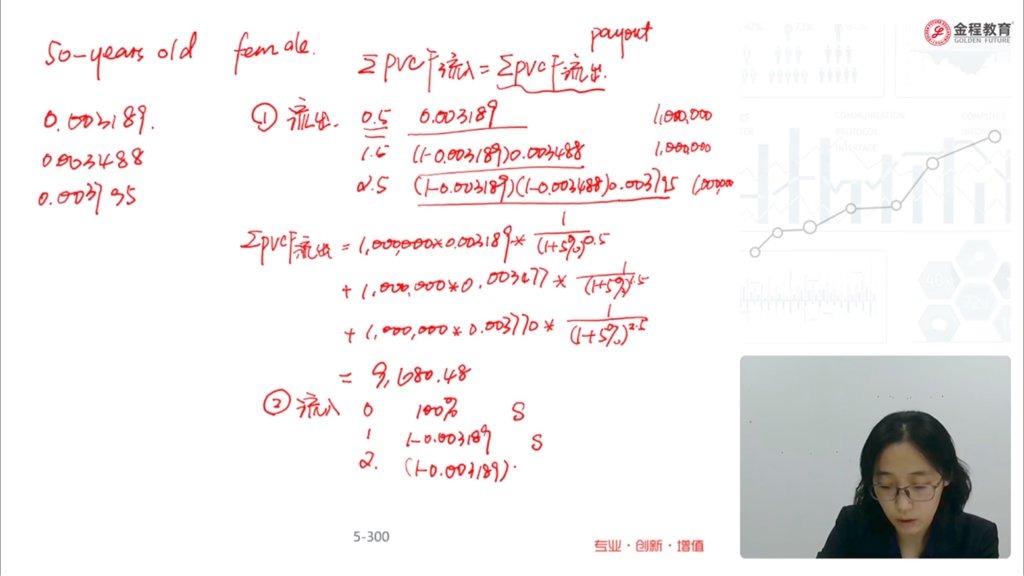 50-years old female.
payout
ΣPVCF流入 = ΣPVCF流出.
0.003189.
0.003488
0.003795
① 流出. 0.5 0.003189 1,000,000
1.5 (1-0.003189)0.003488 1,000,000
2.5 (1-0.003189)(1-0.003488)0.003795 1,000,000
ΣPVCF流出 = 1,000,000*0.003189* 1/(1+5%)^0.5
+ 1,000,000*0.003477* 1/(1+5%)^1.5
+ 1,000,000*0.003770* 1/(1+5%)^2.5
= 9,680.48
② 流入 0 100% S
1 1-0.003189 S
2. (1-0.003189).
5-300
专业·创新·增值
金程教育
GOLDEN FUTURE